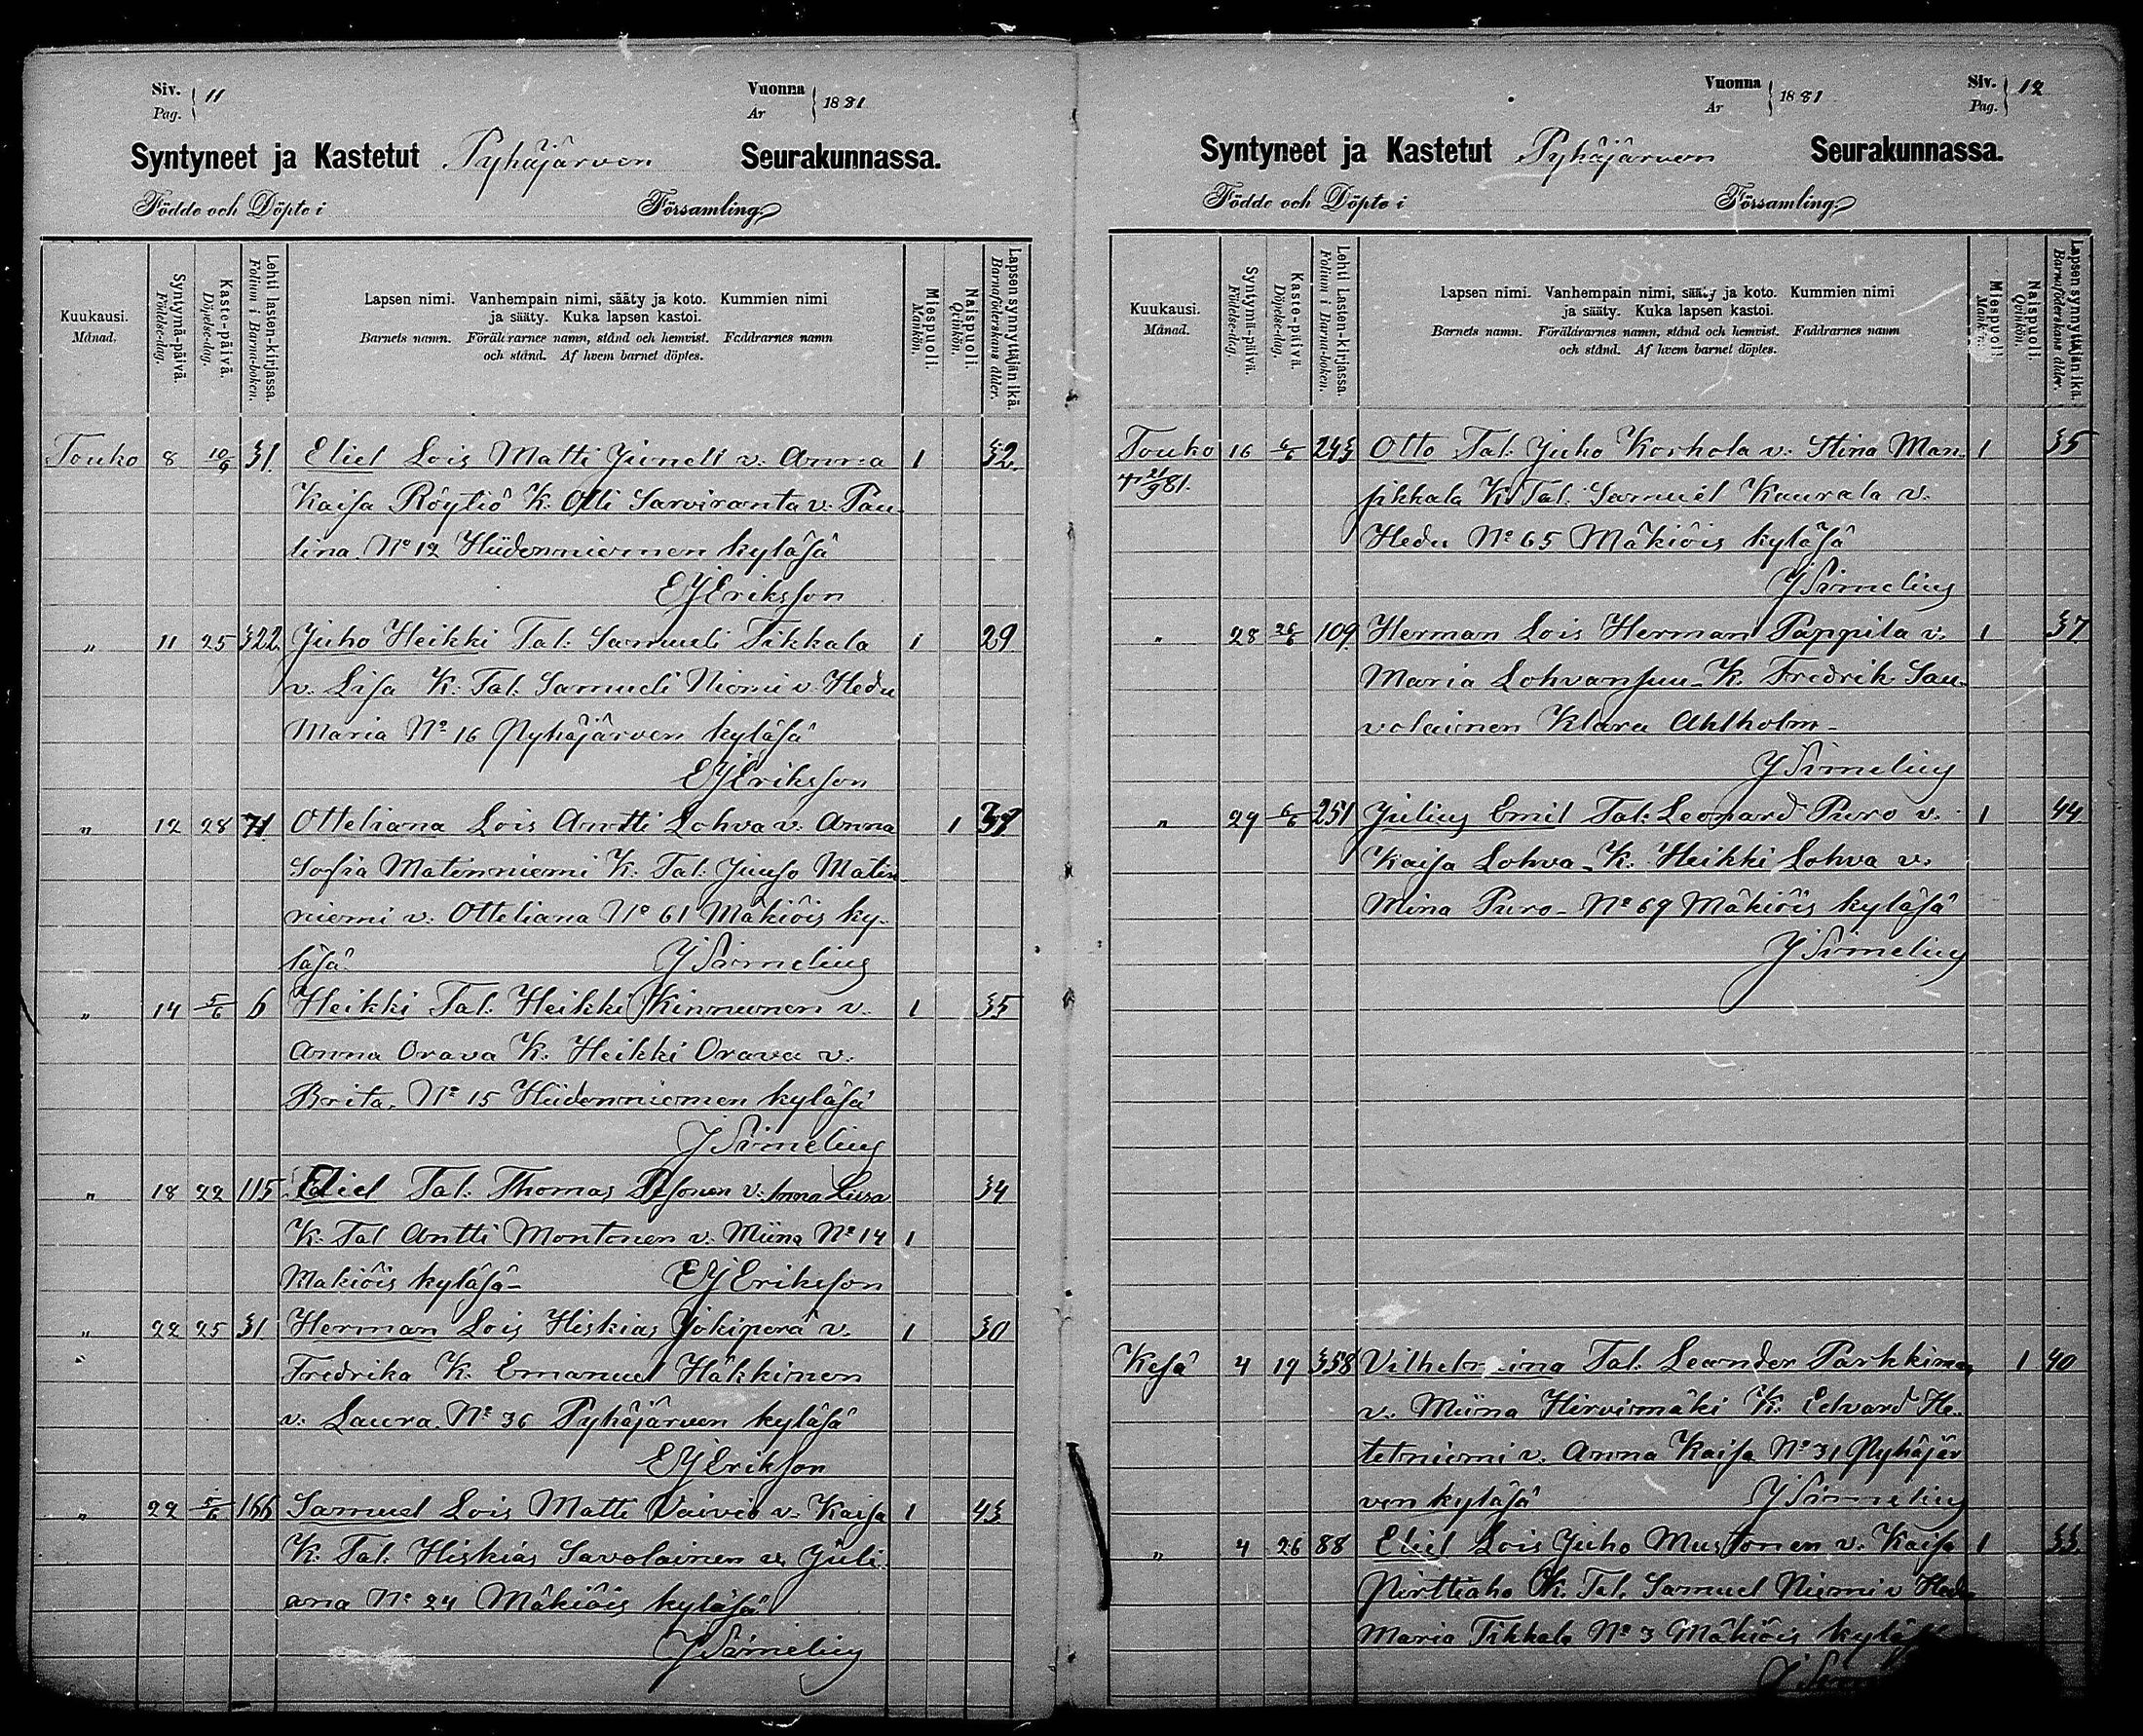 Siv. Pag. 11
Vuonna År 1881
Syntyneet ja Kastetut Pyhäjärven Seurakunnassa.
Födde och Döpte i Församling.
Kuukausi. Månad.
Syntymä-päivä. Födelse-dag.
Kaste-päivä. Döpelse-dag.
Lehti lasten-kirjassa. Folium i Barna-boken.
Lapsen nimi. Vanhempain nimi, sääty ja koto. Kummien nimi
ja sääty. Kuka lapsen kastoi.
Barnets namn. Föräldrarnes namn, stånd och hemvist. Faddrarnes namn
och stånd. Af hvem barnet döptes.
Miespuoli. Mankön.
Naispuoli. Qvinkön.
Lapsen synnyttäjän ikä. Barnaföderskans ålder.
Touko 8 10/6 31. Eliel Lois Matti Junell v. Anna 1 32.
Kaisa Röytiö K. Olli Sarviranta v. Pau-
lina. No 12 Hiidenniemen kyläsä
EJEriksson
" 11 25 322. Juho Heikki Tal: Samueli Tikkala 1 29
v. Lisa K: Tal: Samueli Niemi v. Hedu
Maria No 16 Pyhäjärven kyläsä
EJEriksson
" 12 28 71. Otteliana Lois Antti Lohva v: Anna 1
Sofia Matenniemi K. Tal: Juuso Maten-
niemi v: Otteliana No 61 Mäkiöis ky-
läsä. J Simelius
" 14 5/6 6 Heikki Tal: Heikki Kinnunen v. 1 35
Anna Orava K. Heikki Orava v.
Brita. No 15 Hiidenniemen kyläsä
J Simelius
" 18 22 115 Eliel Tal: Thomas Pesonen v: Anna Liisa 34
K: Tal Antti Montonen v: Miina No 14 1
Makiöis kyläsä- EJ Eriksson
" 22 25 31 Herman Lois Hiskias Jokiperä v. 1 30
Fredrika K. Emanuel Häkkinen
v: Laura. No 36 Pyhäjärven kyläsä
EJErikson
" 22 5/6 166 Samuel Lois Matti Vaivio v. Kaisa 1 43
K: Tal: Hiskias Savolainen v. Juli-
ana No 24 Mäkiöis kyläsä
J Simelius
Vuonna År 1881
Siv. Pag. 12
Syntyneet ja Kastetut Pyhäjärven Seurakunnassa.
Födde och Döpte i Församling.
Kuukausi. Månad.
Syntymä-päivä. Födelse-dag.
Kaste-päivä. Döpelse-dag.
Lehti Lasten-kirjassa. Folium i Barna-boken.
Lapsen nimi. Vanhempain nimi, sääty ja koto. Kummien nimi
ja sääty. Kuka lapsen kastoi.
Barnets namn. Föräldrarnes namn, stånd och hemvist. Faddrarnes namn
och stånd. Af hvem barnet döptes.
Miespuoli. Mankön.
Naispuoli. Qvinkön.
Lapsen synnyttäjän ikä. Barnaföderskans ålder.
Touko 16 6/6 243 Otto Tal: Juho Korhola v: Stina Man- 1 35
sikkala K. Tal. Samuel Kaurala v.
Hedu No 65 Mäkiöis kyläsä
J Simelius
" 28 26/6 109. Herman Lois Herman Pappila v. 1 37
Maria Lohvansuu- K. Fredrik Sau-
volainen Klara Ahlholm-
J Simelius
" 29 6/6 251 Julius Emil Tal: Leonard Puro v. 1 44
Kaisa Lohva- K: Heikki Lohva v.
Mina Puro- No 69 Mäkiöis kyläsä
J Simelius
Kesä 4 19 358 Vilhelmiina Tal: Leander Parkkinen 1 40
v. Miina Hirvimäki K: Edvard He-
tetniemi v. Anna Kaisa No 31 Pyhäjär
ven kyläsä J Simelius
" 4 26 88 Eliel Lois Juho Mustonen v. Kaisa 1 33.
Pirttiaho K. Tal. Samuel Niemi v Hedu
Maria Tikkala No 3 Mäkiöis